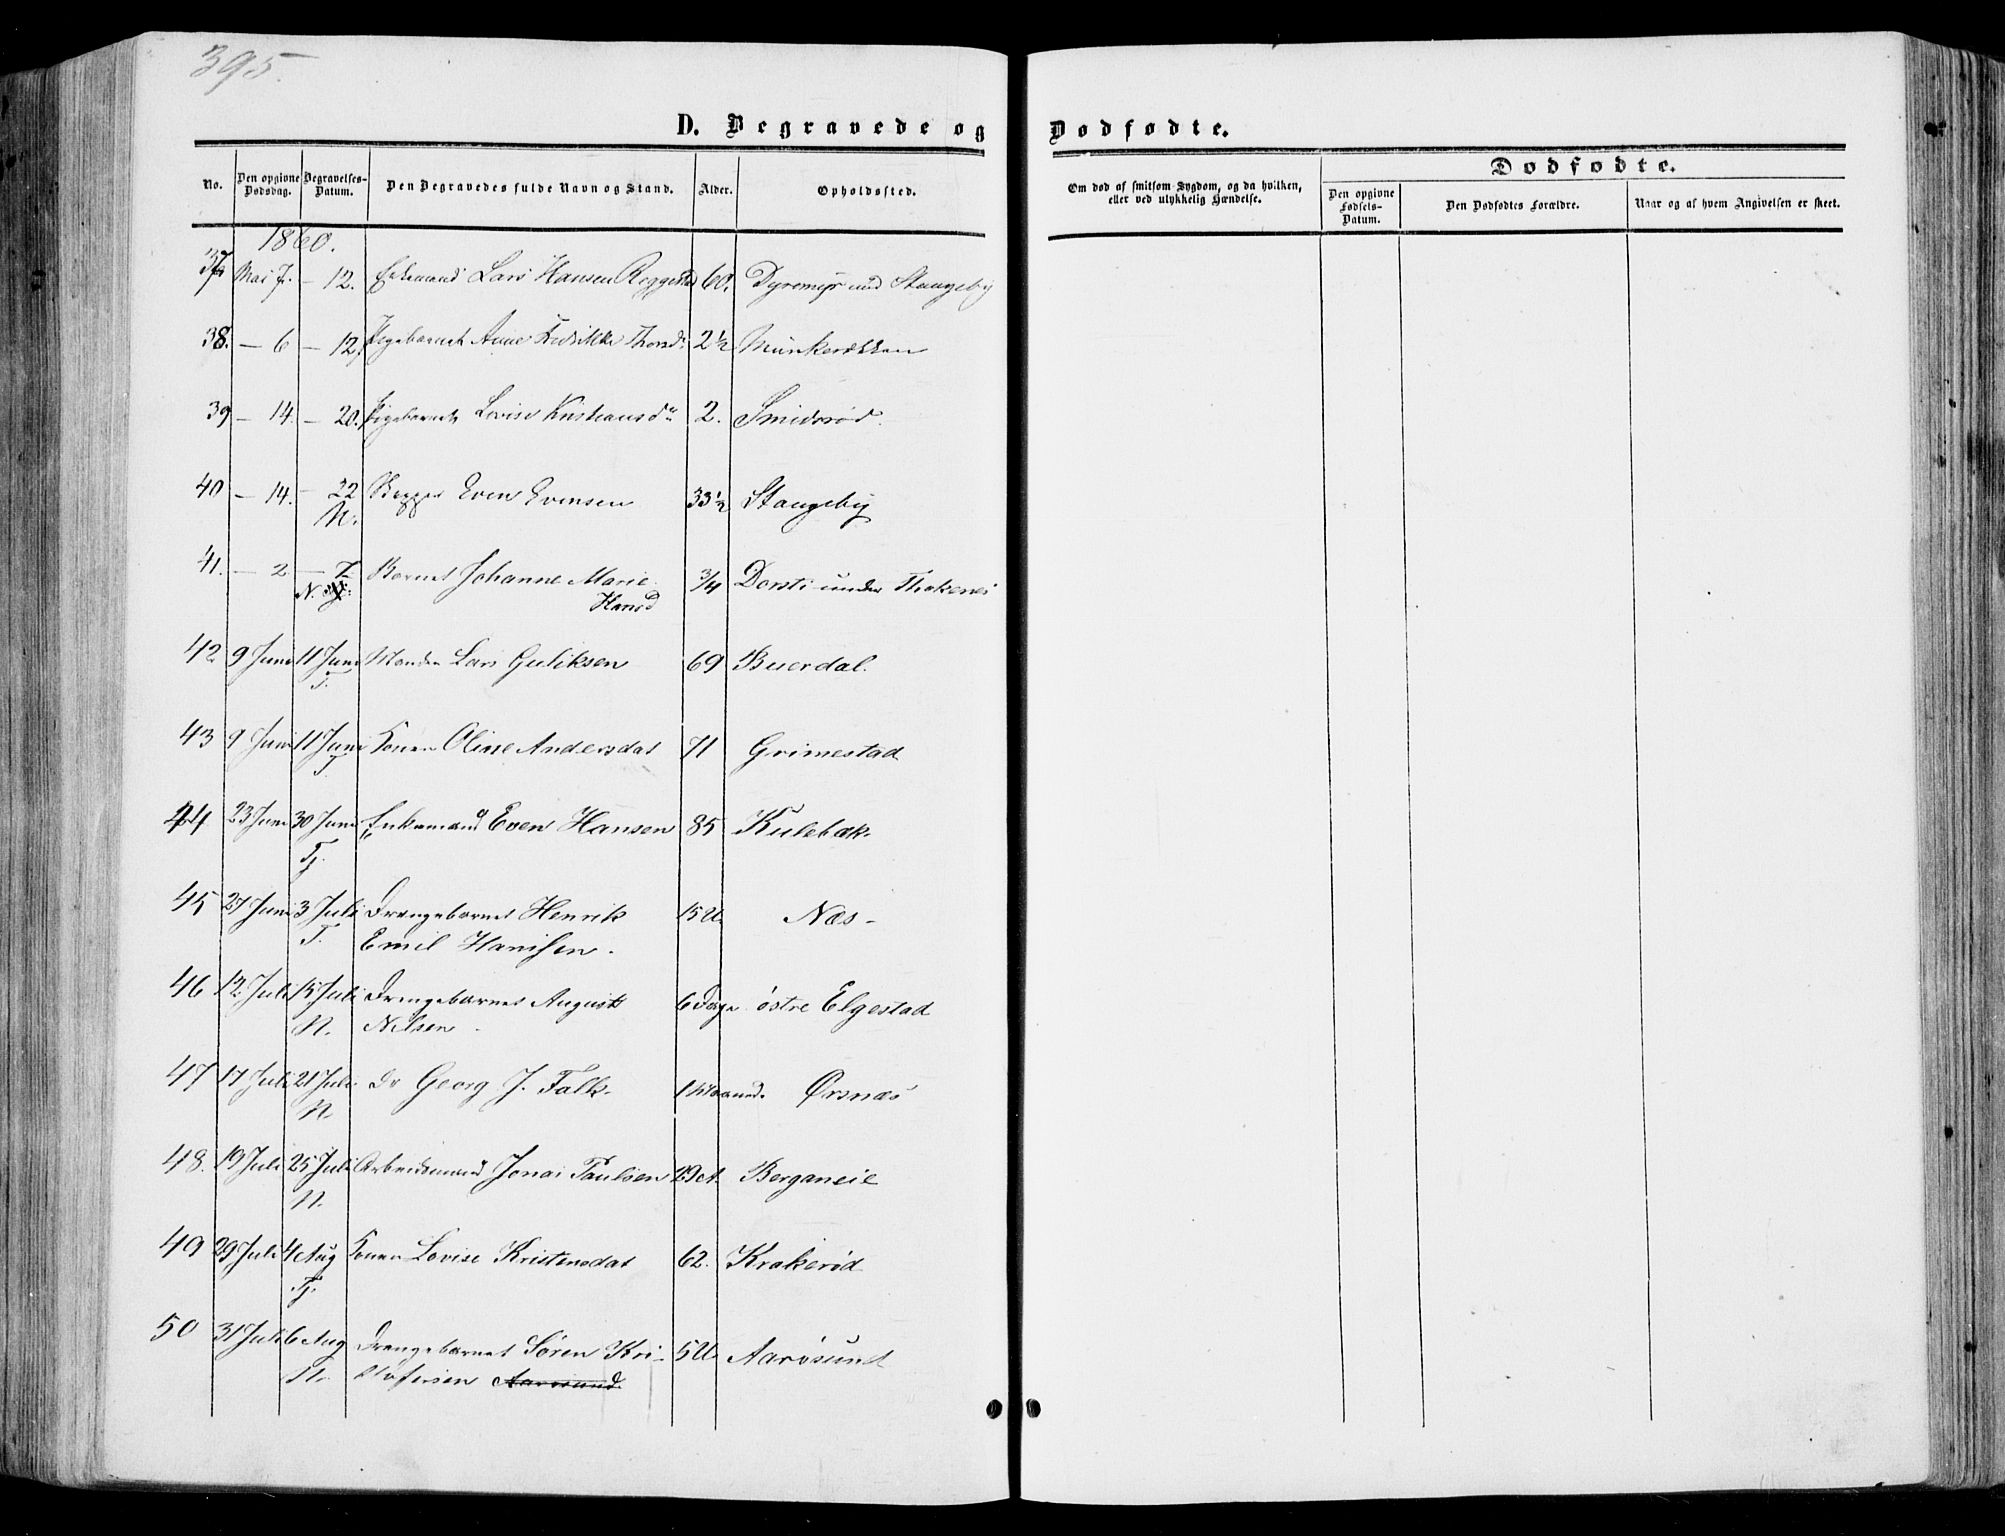 395.
D. Begravede og Dødfødte.
No. Den opgivne Dødsdag. Begravelses-Datum. Den Begravedes fulde Navn og Stand. Alder. Opholdssted.
Om død af smitsom Sygdom, og da hvilken, eller ved ulykkelig Hændelse.
Dødfødte.
Den opgivne Fødsels-Datum. Den Dødfødtes Forældre. Naar og af hvem Angivelsen er skeet.
1860.
37 Mai 7. – 12. Enkemand Lars Hansen 60. Dyremyr und Stangeby
38. – 6 – 12. Pigebarnet Anne Fredrikke Thorsd. 2½ Munkerekken
39 – 14. – 20. Pigebarnet Lovise Kristiansdr 2. Smidsrød.
40 – 14. – 22 Even Evensen 33½ Stangeby
N.
41. – 2 – 7 Barnet Johanne Marie ¾ Dorsti under
N.
Hansd
42 9 Juni 11 Juni Manden Lars Guliksen 69 Buerdal.
T.
43 9 Juni 11 Juni Konen Oline Andersdat 71 Grimestad
T.
44 23 Juni 30 Juni Enkemand Even Hansen 85 Kulebæk
Tj.
45 27 Juni 3 Juli Drengebarnet Henrik 15 U. Næs –
T. Emil Hansen.
46 12 Juli 15 Juli Drengebarnet August 6 Dage østre Elgestad
N. Nilsen
47 17 Juli 21 Juli Dr Georg J. Falk 1 Maaned. Ørsnæs
N.
48. 19 Juli 25 Juli Arbeidsmand Jonas Paulsen Berganeie
N.
49 29 Juli 4 Aug Konen Lovise Kristensdat 62. Krakerød
Tj.
50 31 Juli 6 Aug Drengebarnet Søren Kri- 5 U. Aarøsund
N. stofersen Aarøsund.